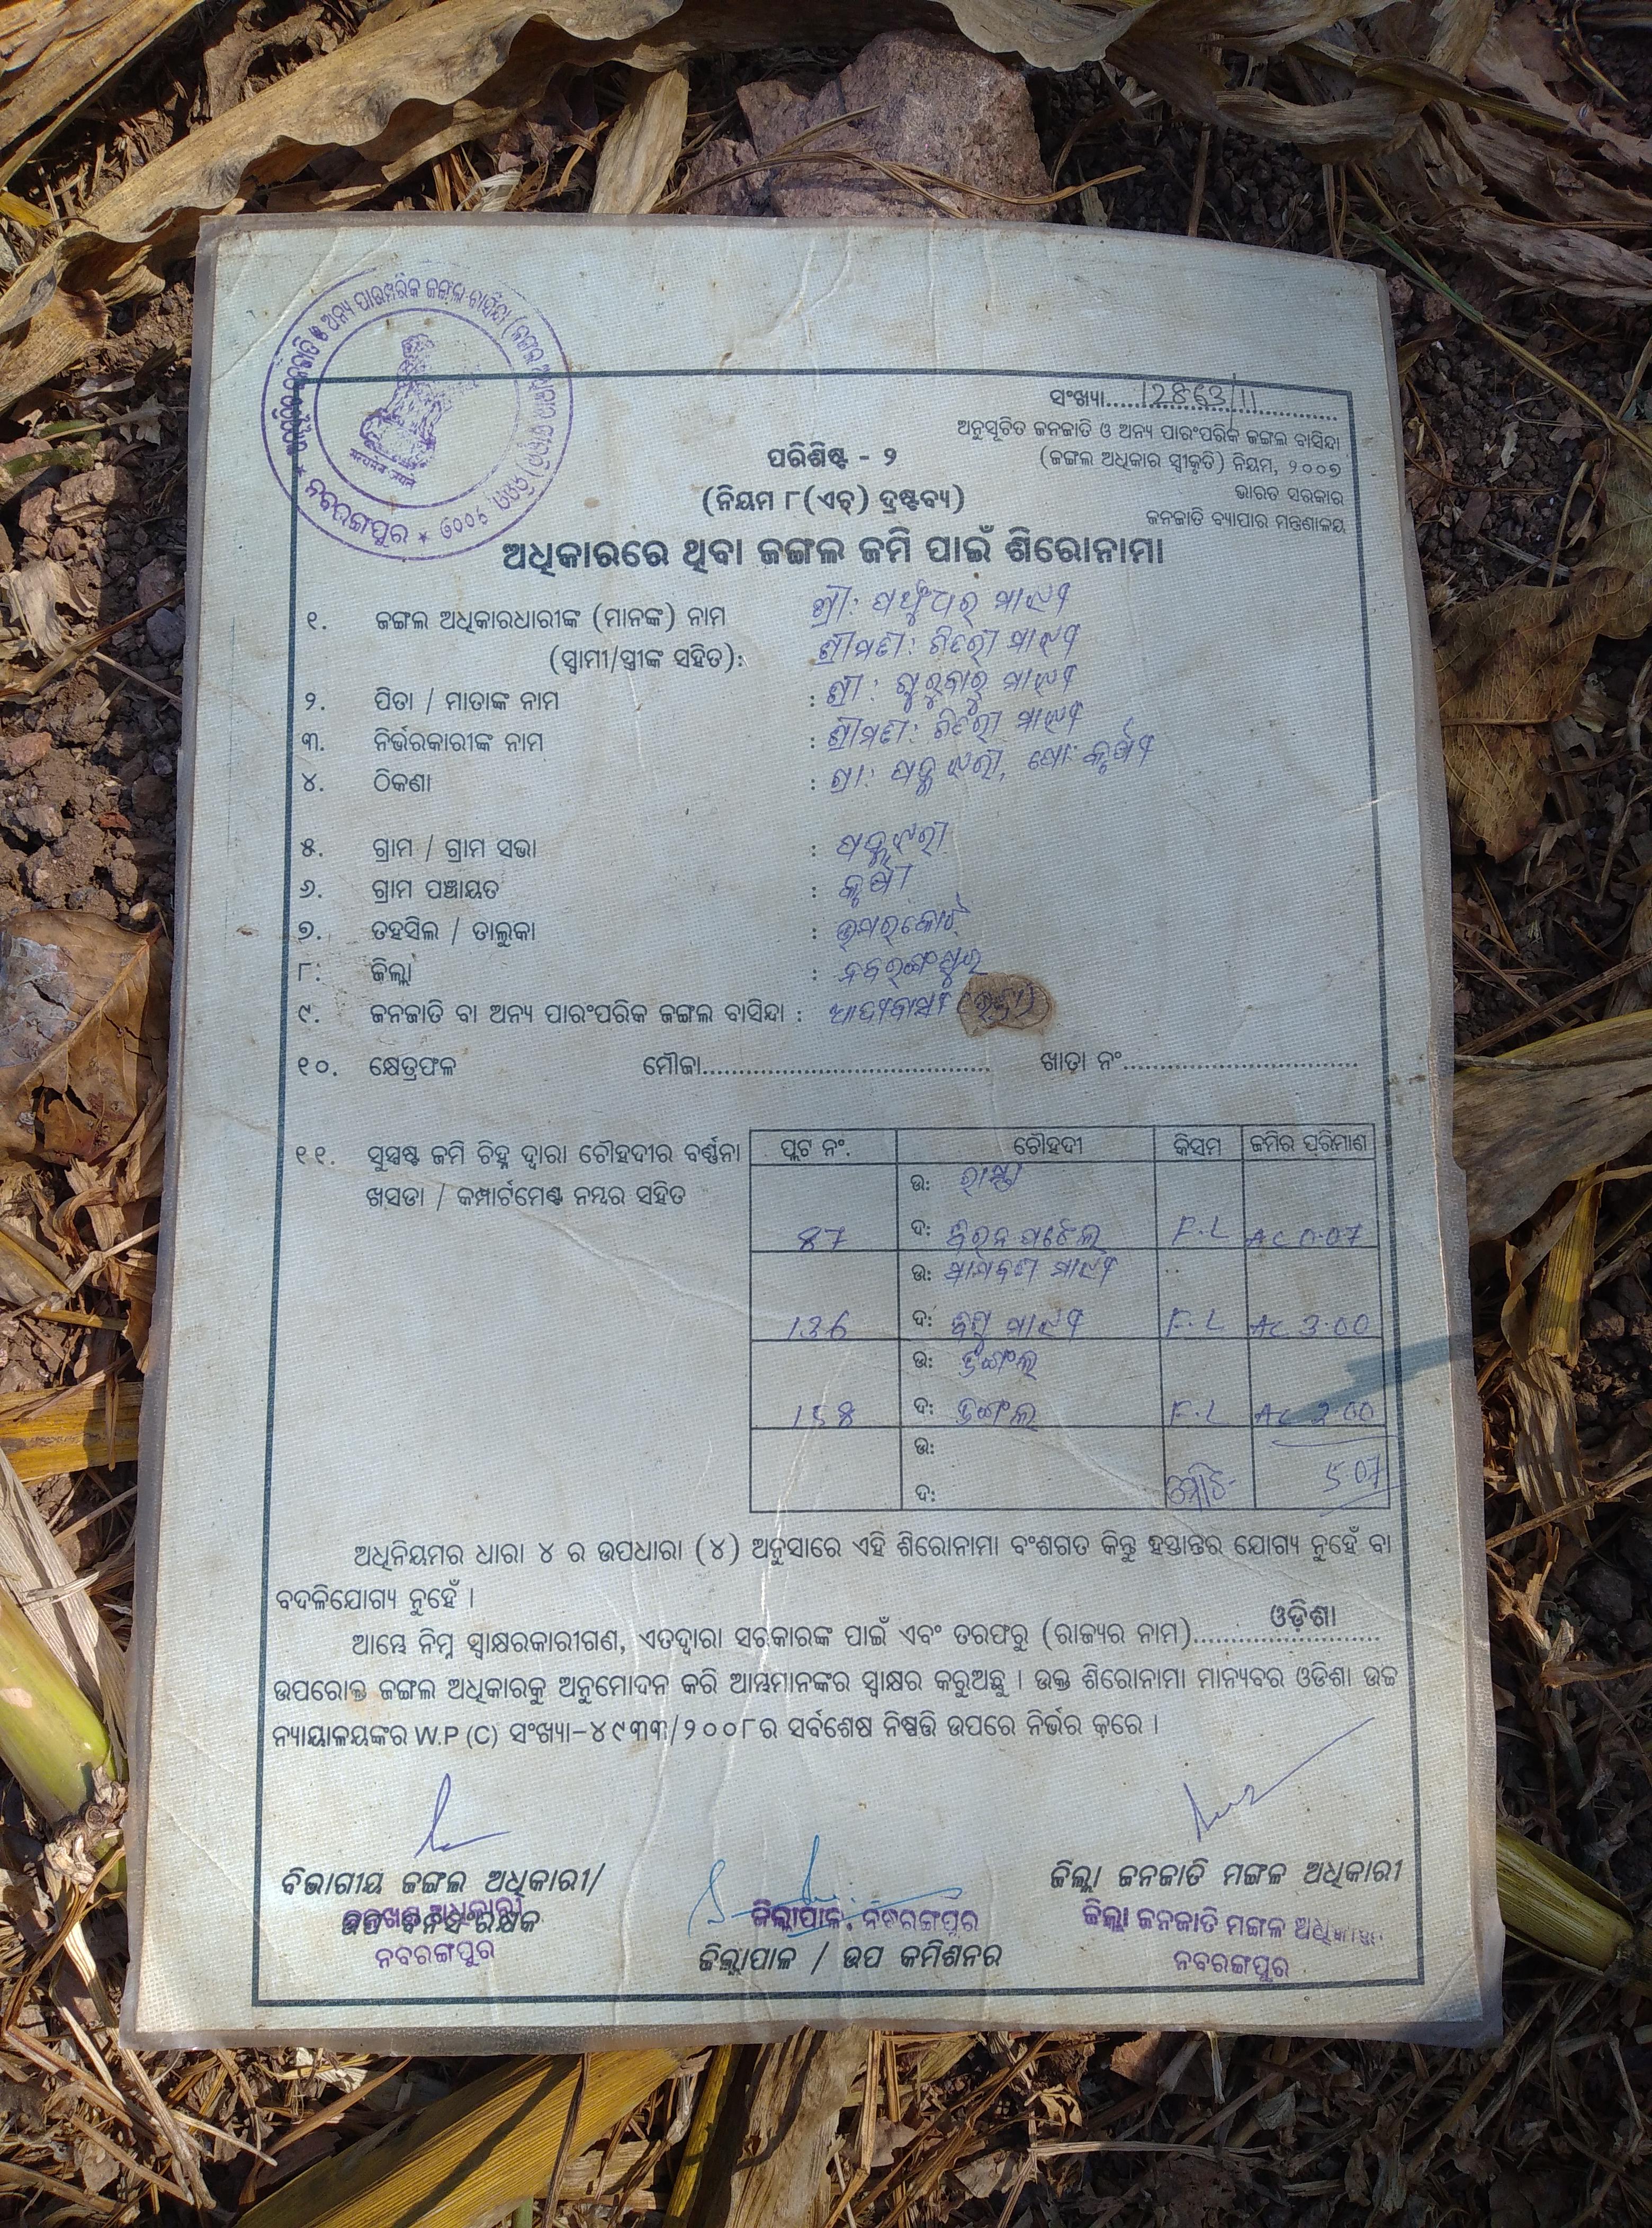 ଅନୁସୂଚିତ ଜନଜାତି ଓ ଅନ୍ୟ ପାରମ୍ପରିକ ଜଙ୍ଗଲ ବାସିନ୍ଦା (ଜଙ୍ଗଲ
ନବରଙ୍ଗପୁର
ସଂଖ୍ୟା
ଅନୁସୂଚିତ ଜନଜାତି ଓ ଅନ୍ୟ ପାରଂପରିକ ଜଙ୍ଗଲ ବାସିନ୍ଦା
(ଜଙ୍ଗଲ ଅଧିକାର ସ୍ୱୀକୃତି) ନିୟମ, ୨୦୦୭
ଭାରତ ସରକାର
ଜନଜାତି ବ୍ୟାପାର ମନ୍ତ୍ରଣାଳୟ
ପରିଶିଷ୍ଟ - ୨
(ନିୟମ ୮(ଏଚ୍) ଦ୍ରଷ୍ଟବ୍ୟ)
ଅଧିକାରରେ ଥିବା ଜଙ୍ଗଲ ଜମି ପାଇଁ ଶିରୋନାମା
୧. ଜଙ୍ଗଲ ଅଧିକାରଧାରୀଙ୍କ (ମାନଙ୍କ) ନାମ ଶ୍ରୀ: ମାଝୀ
(ସ୍ୱାମୀ/ସ୍ତ୍ରୀଙ୍କ ସହିତ): ଶ୍ରୀମତୀ: ମାଝୀ
୨. ପିତା / ମାତାଙ୍କ ନାମ : ଶ୍ରୀ: ଗୁରୁବାରୁ ମାଝୀ
୩. ନିର୍ଭରକାରୀଙ୍କ ନାମ : ଶ୍ରୀମତୀ: ମାଝୀ
୪. ଠିକଣା : ଗ୍ରା:
୫. ଗ୍ରାମ / ଗ୍ରାମ ସଭା :
୬. ଗ୍ରାମ ପଞ୍ଚାୟତ :
୭. ତହସିଲ / ତାଲୁକା : ଉମରକୋଟ
୮. ଜିଲ୍ଲା : ନବରଙ୍ଗପୁର
୯. ଜନଜାତି ବା ଅନ୍ୟ ପାରଂପରିକ ଜଙ୍ଗଲ ବାସିନ୍ଦା : ଆଦୀବାସୀ
୧୦. କ୍ଷେତ୍ରଫଳ ମୌଜା.................... ଖାତା ନଂ....................
୧୧. ସୁସ୍ପଷ୍ଟ ଜମି ଚିହ୍ନ ଦ୍ୱାରା ଚୌହଦୀର ବର୍ଣ୍ଣନା
ଖସଡା / କମ୍ପାର୍ଟମେଣ୍ଟ ନମ୍ବର ସହିତ
ପ୍ଲଟ ନଂ. ଚୌହଦୀ କିସମ ଜମିର ପରିମାଣ
ଉ: ରାସ୍ତା
87 ଦ: ପଟେଲ F.L AC 0.07
ଉ: ମାଝୀ
136 ଦ: ମାଝୀ F.L AC 3.00
ଉ: ଜଙ୍ଗଲ
158 ଦ: ଜଙ୍ଗଲ F.L AC 2.00
ଉ:
ଦ: ମୋଟ- 5.07
ଅଧିନିୟମର ଧାରା ୪ ର ଉପଧାରା (୪) ଅନୁସାରେ ଏହି ଶିରୋନାମା ବଂଶଗତ କିନ୍ତୁ ହସ୍ତାନ୍ତର ଯୋଗ୍ୟ ନୁହେଁ ବା
ବଦଳିଯୋଗ୍ୟ ନୁହେଁ ।
ଆମ୍ଭେ ନିମ୍ନ ସ୍ୱାକ୍ଷରକାରୀଗଣ, ଏତଦ୍ଦ୍ୱାରା ସରକାରଙ୍କ ପାଇଁ ଏବଂ ତରଫରୁ (ରାଜ୍ୟର ନାମ)....ଓଡ଼ିଶା....
ଉପରୋକ୍ତ ଜଙ୍ଗଲ ଅଧିକାରକୁ ଅନୁମୋଦନ କରି ଆମ୍ଭମାନଙ୍କର ସ୍ୱାକ୍ଷର କରୁଅଛୁ । ଉକ୍ତ ଶିରୋନାମା ମାନ୍ୟବର ଓଡିଶା ଉଚ୍ଚ
ନ୍ୟାୟାଳୟଙ୍କର W.P (C) ସଂଖ୍ୟା-୪୯୩୩/୨୦୦୮ର ସର୍ବଶେଷ ନିଷ୍ପତ୍ତି ଉପରେ ନିର୍ଭର କରେ ।
ବିଭାଗୀୟ ଜଙ୍ଗଲ ଅଧିକାରୀ/
ଉପ ବନସଂରକ୍ଷକ
ନବରଙ୍ଗପୁର
ଜିଲ୍ଲାପାଳ, ନବରଙ୍ଗପୁର
ଜିଲ୍ଲାପାଳ / ଉପ କମିଶନର
ଜିଲ୍ଲା ଜନଜାତି ମଙ୍ଗଳ ଅଧିକାରୀ
ଜିଲ୍ଲା ଜନଜାତି ମଙ୍ଗଳ ଅଧିକାରୀ
ନବରଙ୍ଗପୁର